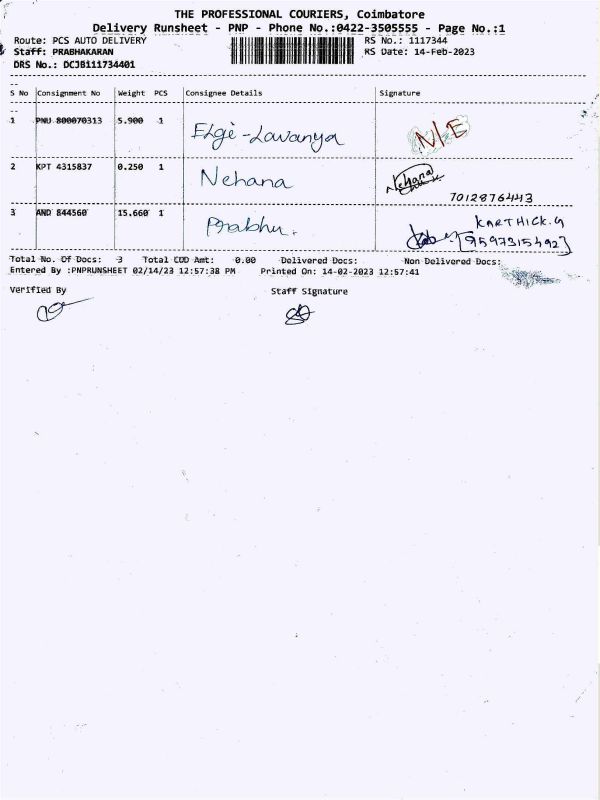 THE PROFESSIONAL COURIERS, Coimbatore
Delivery Runsheet - PNP - Phone No.:0422-3505555 - Page No.:1
Route: PCS AUTO DELIVERY RS No.: 1117344
Staff: PRABHAKARAN RS Date: 14-Feb-2023
DRS No.: DCJB111734401
S No Consignment No Weight PCS Consignee Details Signature
1 PNU 800070313 5.900 1 Elgi - Lavanya N/E
2 KPT 4315837 0.250 1 Nehana Nehana
7012876443
3 AND 844560 15.660 1 Prabhu. KARTHICK.G
[9597315492]
Total No. Of Docs: 3 Total COD Amt: 0.00 Delivered Docs: Non Delivered Docs:
Entered By :PNPRUNSHEET 02/14/23 12:57:38 PM Printed On: 14-02-2023 12:57:41
Verified By Staff Signature